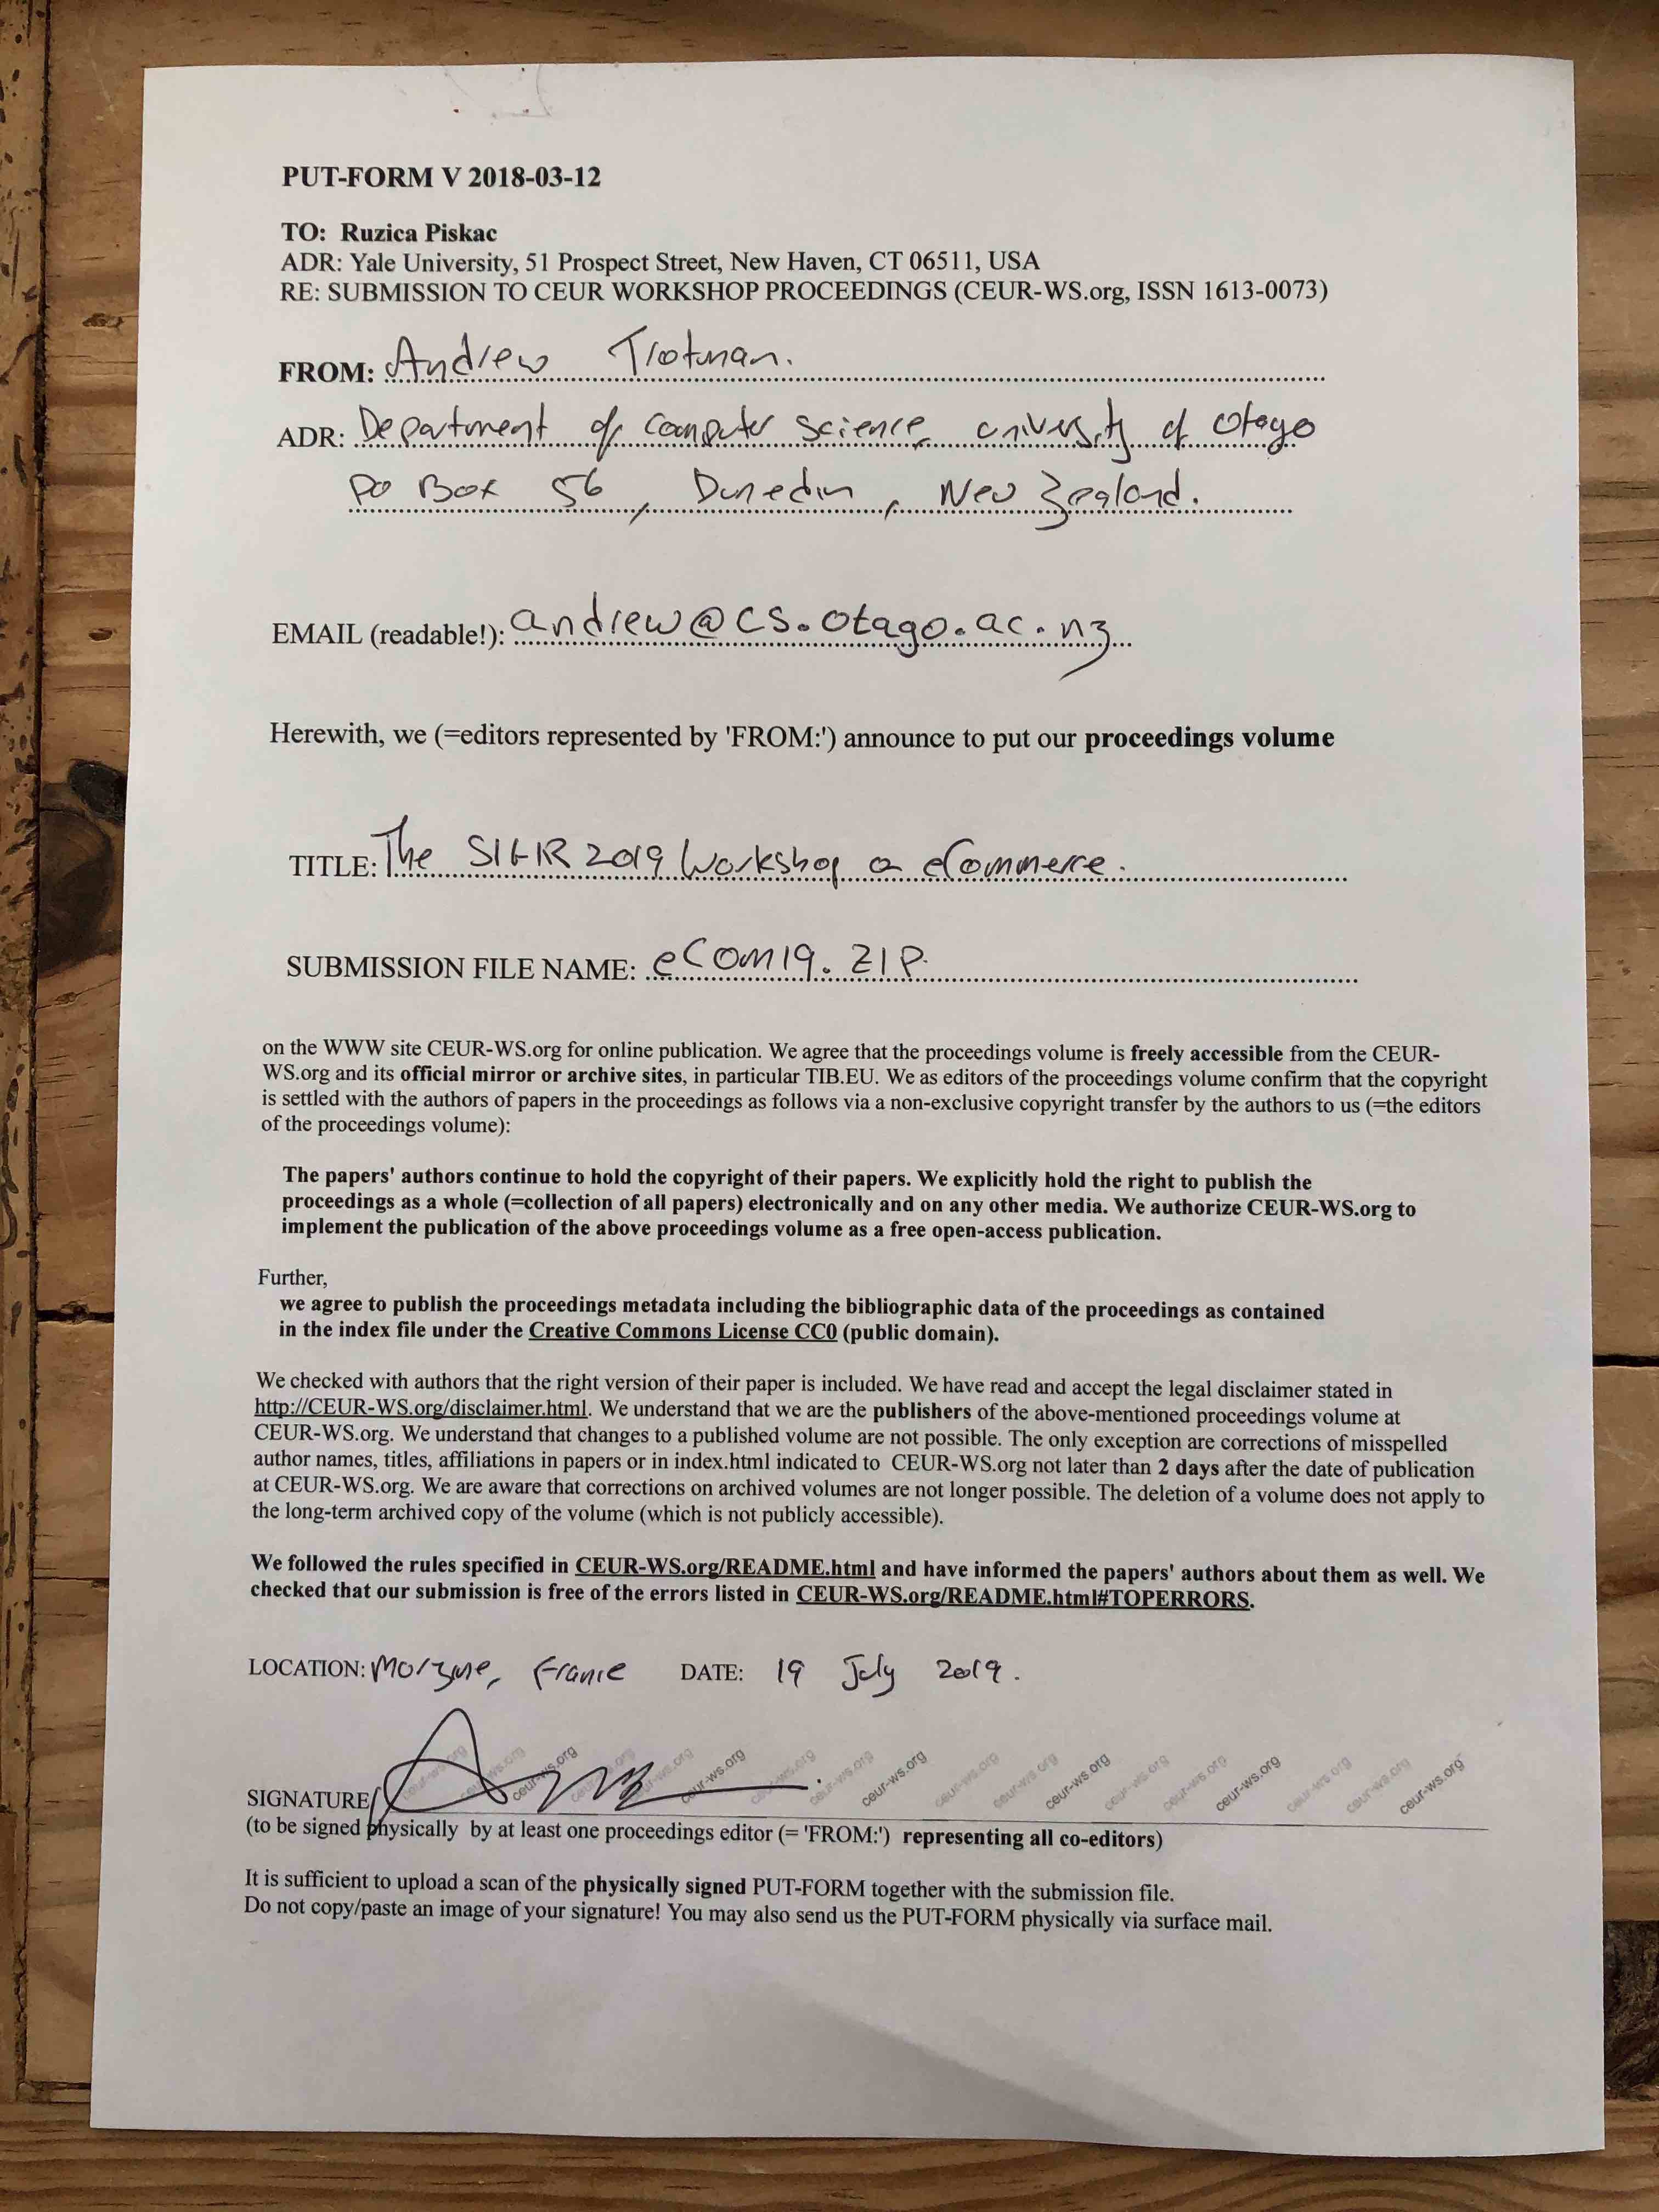 PUT-FORM V 2018-03-12
TO: Ruzica Piskac
ADR: Yale University, 51 Prospect Street, New Haven, CT 06511, USA
RE: SUBMISSION TO CEUR WORKSHOP PROCEEDINGS (CEUR-WS.org, ISSN 1613-0073)
FROM: Andrew Trotman.
ADR: Department of Computer Science, University of Otago
PO Box 56, Dunedin, New Zealand.
EMAIL (readable!): andrew@cs.otago.ac.nz
Herewith, we (=editors represented by 'FROM:') announce to put our proceedings volume
TITLE: The SIGIR 2019 Workshop on eCommerce.
SUBMISSION FILE NAME: eCom19.ZIP
on the WWW site CEUR-WS.org for online publication. We agree that the proceedings volume is freely accessible from the CEUR-
WS.org and its official mirror or archive sites, in particular TIB.EU. We as editors of the proceedings volume confirm that the copyright
is settled with the authors of papers in the proceedings as follows via a non-exclusive copyright transfer by the authors to us (=the editors
of the proceedings volume):
The papers' authors continue to hold the copyright of their papers. We explicitly hold the right to publish the
proceedings as a whole (=collection of all papers) electronically and on any other media. We authorize CEUR-WS.org to
implement the publication of the above proceedings volume as a free open-access publication.
Further,
we agree to publish the proceedings metadata including the bibliographic data of the proceedings as contained
in the index file under the Creative Commons License CC0 (public domain).
We checked with authors that the right version of their paper is included. We have read and accept the legal disclaimer stated in
http://CEUR-WS.org/disclaimer.html. We understand that we are the publishers of the above-mentioned proceedings volume at
CEUR-WS.org. We understand that changes to a published volume are not possible. The only exception are corrections of misspelled
author names, titles, affiliations in papers or in index.html indicated to CEUR-WS.org not later than 2 days after the date of publication
at CEUR-WS.org. We are aware that corrections on archived volumes are not longer possible. The deletion of a volume does not apply to
the long-term archived copy of the volume (which is not publicly accessible).
We followed the rules specified in CEUR-WS.org/README.html and have informed the papers' authors about them as well. We
checked that our submission is free of the errors listed in CEUR-WS.org/README.html#TOPERRORS.
LOCATION: Morzine, France DATE: 19 July 2019.
ceur-ws.org ceur-ws.org ceur-ws.org ceur-ws.org ceur-ws.org ceur-ws.org ceur-ws.org ceur-ws.org ceur-ws.org ceur-ws.org ceur-ws.org ceur-ws.org ceur-ws.org ceur-ws.org ceur-ws.org ceur-ws.org ceur-ws.org ceur-ws.org
SIGNATURE
(to be signed physically by at least one proceedings editor (= 'FROM:') representing all co-editors)
It is sufficient to upload a scan of the physically signed PUT-FORM together with the submission file.
Do not copy/paste an image of your signature! You may also send us the PUT-FORM physically via surface mail.